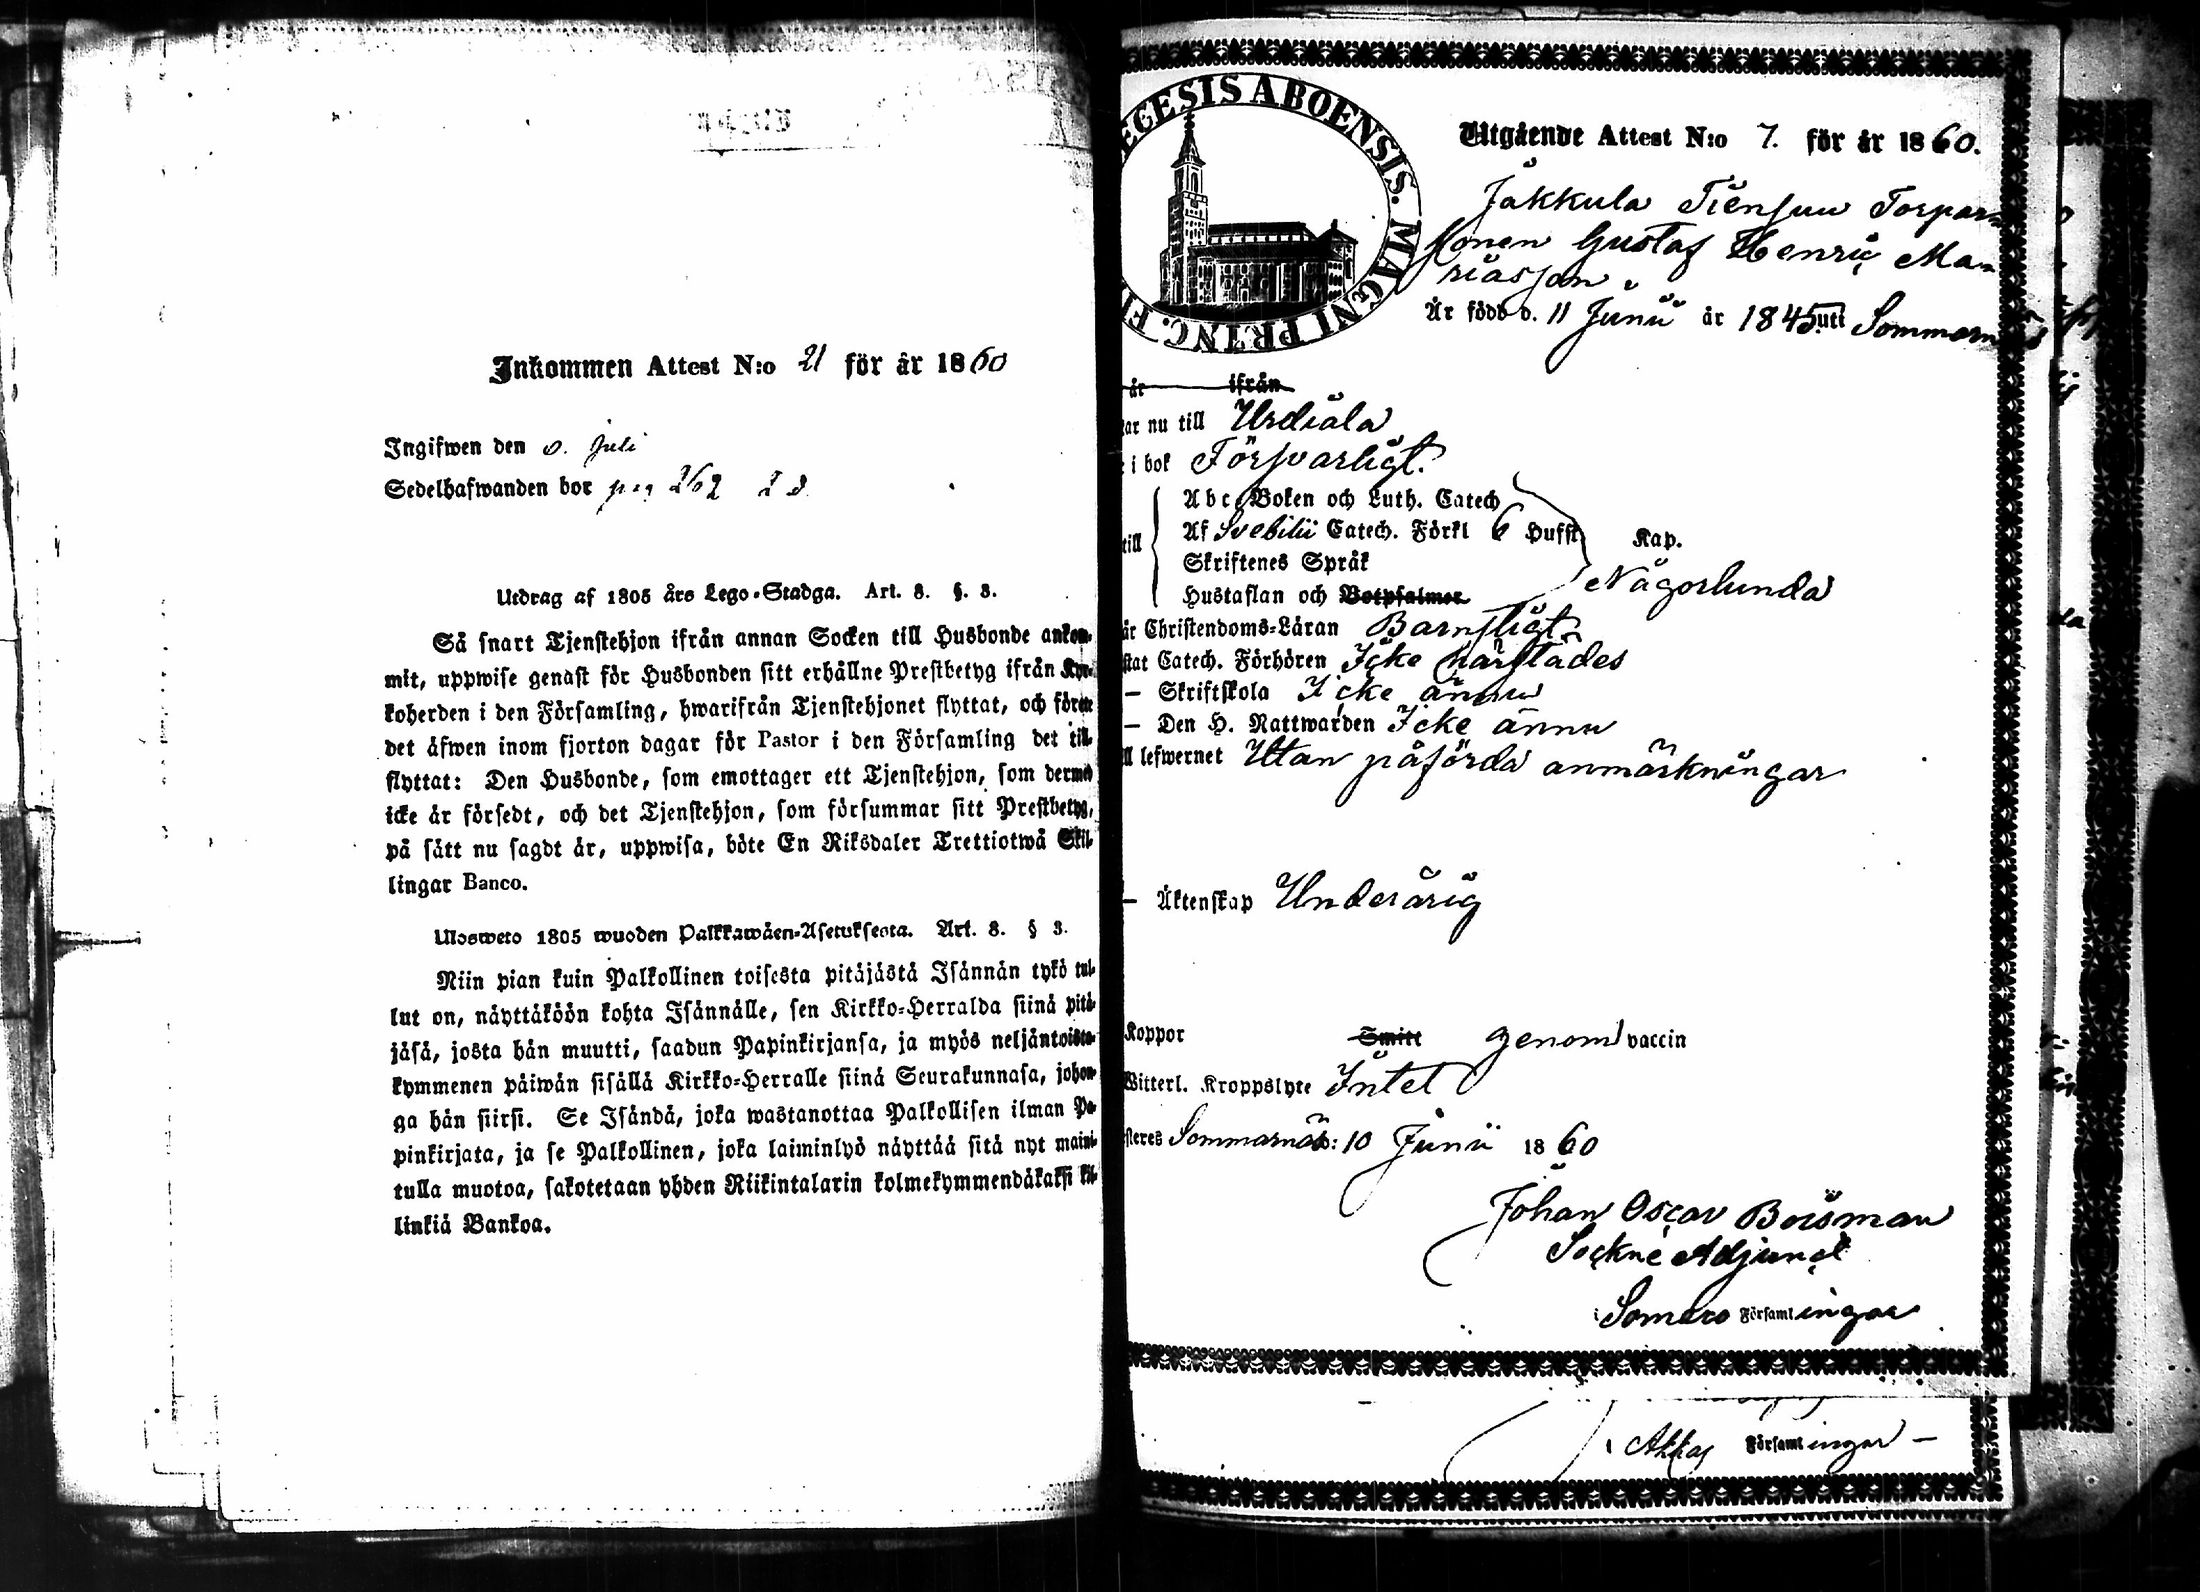 Inkommen Attest N:o 21 för år 1860
Ingifwen den juli
Sedelhafwanden bor pag 262
Utdrag af 1805 års Lego-Stadga. Art. 8. §. 3.
Så snart Tjenstehjon ifrån annan Socken till Husbonde ankom-
mit, uppwise genast för Husbonden sitt erhållne Prestbetyg ifrån Kyr-
koherden i den Församling, hwarifrån Tjenstehjonet flyttat, och förete
det äfwen inom fjorton dagar för Pastor i den Församling det till-
flyttat: Den Husbonde, som emottager ett Tjenstehjon, som dermed
icke är försedt, och det Tjenstehjon, som försummar sitt Prestbetyg,
på sätt nu sagdt är, uppwisa, böte En Riksdaler Trettiotwå Skil-
lingar Banco.
Ulosweto 1805 wuoden Palkkawäen-Asetuksesta. Art. 8. § 3.
Niin pian kuin Palkollinen toisesta pitäjästä Isännän tykö tul-
lut on, näyttäköön kohta Isännälle, sen Kirkko-Herralda siinä pitä-
jäsä, josta hän muutti, saadun Papinkirjansa, ja myös neljäntoista-
kymmenen päiwän sisällä Kirkko-Herralle siinä Seurakunnasa, johon-
ga hän siirsi. Se Isändä, joka wastanottaa Palkollisen ilman Pa-
pinkirjata, ja se Palkollinen, joka laiminlyö näyttää sitä nyt maini-
tulla muotoa, sakotetaan yhden Riikintalarin kolmekymmendäkaksi kil-
linkiä Bankoa.
ECESIS ABOENSIS. MAGNI PRINC. FI
Utgående Attest N:o 7. för år 1860.
Jakkula Tiensuu Torpar-
sonen Gustaf Henric Ma-
riasson
Är född d. 11 Junii år 1845 uti Sommarnäs
år ifrån
ar nu till Urdiala
i bok Försvarligt.
till
Abc Boken och Luth. Catech
Af Svebilii Catech. Förkl 6 Hufst. Kap.
Skriftenes Språk
Hustaflan och Botpsalmer Någorlunda
är Christendoms-Läran Barnsligt
stat Catech. Förhören Icke härstädes
— Skriftskola Icke ännu
— Den H. Nattwarden Icke ännu
ll lefwernet Utan påförda anmärkningar
— Äktenskap Underårig
Koppor Smitt genom vaccin
Witterl. Kroppslyte Intet
steres Sommarnäs: 10 Junii 1860
Johan Oscar Boisman
Sockne Adjunct
i Somero Församlingar
i Akkas Församlingar —